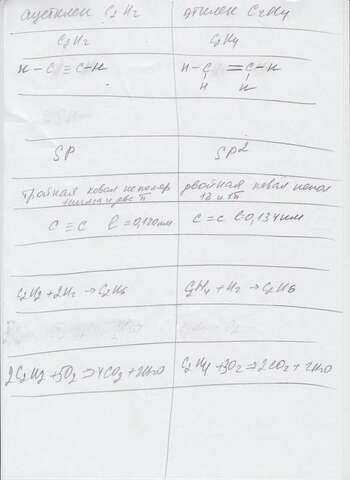 ацетилен C2H2
этилен C2H4
C2H2
C2H4
H-C≡C-H
H-C=C-H
H H
SP
SP2
тройная ковал неполяр
1 сигма и две π
двойная ковал непол
1б и 1π
C≡C l=0,120нм
C=C l-0,134нм
C2H2+2H2→C2H6
C2H4+H2→C2H6
2C2H2+5O2⇒4CO2+2H2O
C2H4+3O2⇒2CO2+2H2O